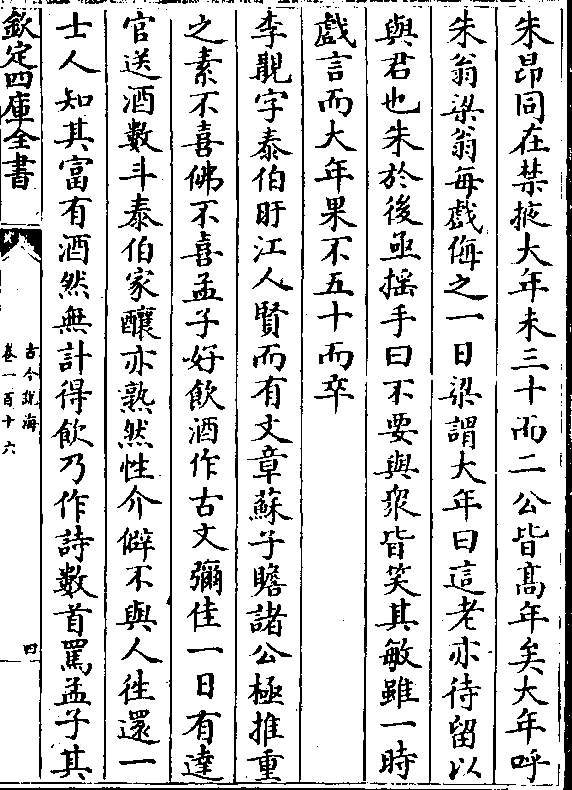 朱昂同在禁掖大年未三十而二公皆髙年矣大年呼
朱翁梁翁每戲侮之一日梁謂大年曰這老亦待留以
與君也朱於後亟揺手曰不要與衆皆笑其敏雖一時
戲言而大年果不五十而卒
李覯字泰伯盱江人賢而有文章蘇子瞻諸公極推重
之素不喜佛不喜孟子好飲酒作古文彌佳一日有達
官送酒數斗泰伯家釀亦熟然性介僻不與人徃還一
士人知其富有酒然無計得飲乃作詩數首罵孟子其
欽定四庫全書
古今說海
卷一百十六
四